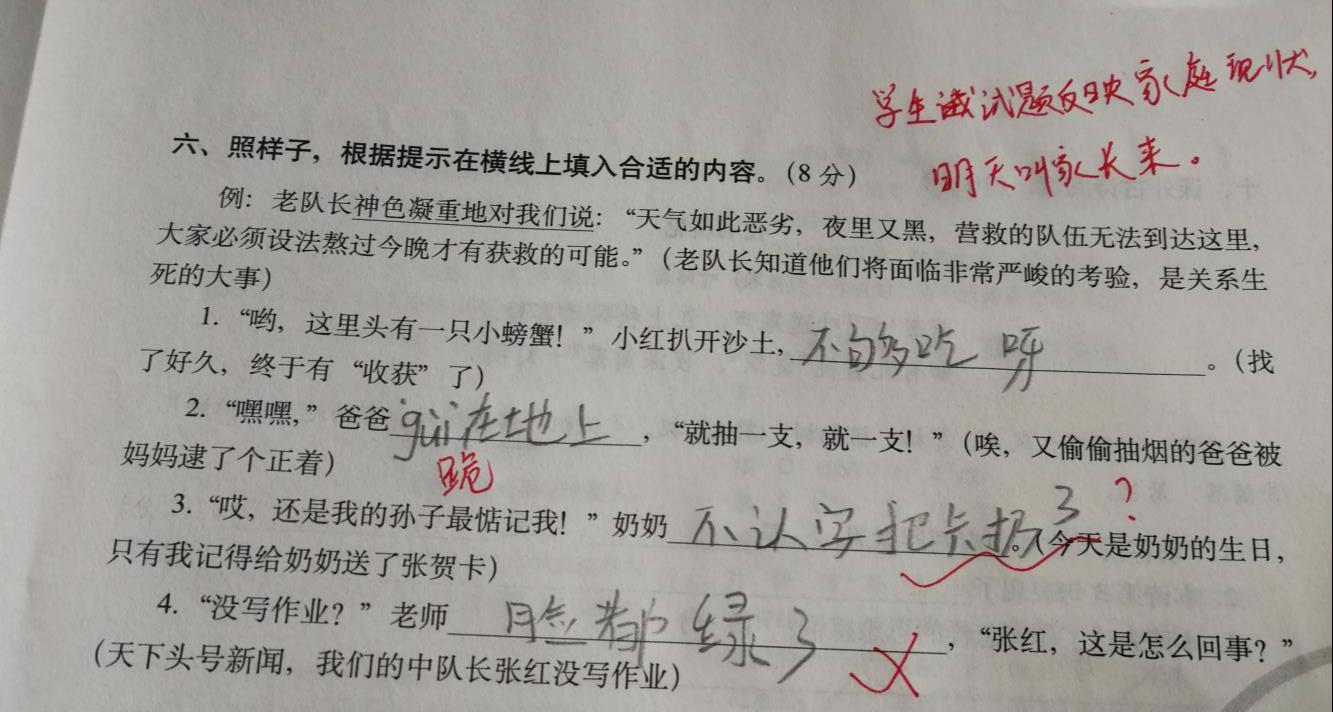 学生诚试题反映家庭现状,
明天叫家长来。
六、照样子，根据提示在横线上填入合适的内容。(8分)
例：老队长神色凝重地对我们说：“天气如此恶劣，夜里又黑，营救的队伍无法到达这里，
大家必须设法熬过今晚才有获救的可能。”（老队长知道他们将面临非常严峻的考验，是关系生
死的大事）
1. “哟，这里头有一只小螃蟹！”小红扒开沙土，不够吃呀。（找
了好久，终于有“收获”了）
2. “嘿嘿，”爸爸guì在地上，“就抽一支，就一支！”（唉，又偷偷抽烟的爸爸被
跪
妈妈逮了个正着）
3. “哎，还是我的孙子最惦记我！”奶奶不认字把卡扔了？。（今天是奶奶的生日，
只有我记得给奶奶送了张贺卡）
4. “没写作业？”老师脸都绿了，“张红，这是怎么回事？”
（天下头号新闻，我们的中队长张红没写作业）